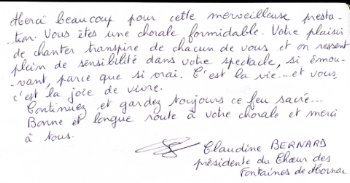 Merci beaucoup pour cette merveilleuse presta-
tion. Vous êtes une chorale formidable. Votre plaisir
de chanter transpire de chacun de vous et on ressent
plein de sensibilité dans votre spectacle, si émou-
vant, parce que si vrai. C'est la vie... et vous
c'est la joie de vivre.
Continuez et gardez toujours ce feu sacré...
Bonne et longue route à votre chorale et merci
à tous.
Claudine BERNARD
présidente du Choeur des
Fontaines de Mornac